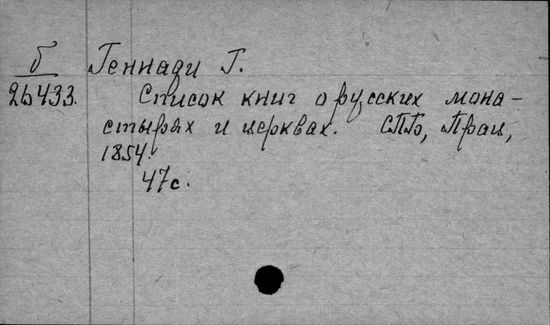 б Геннади Г.
26433. Список книг о русских мона-
стырях и церквах. СПб, Прац,
1854.
47 с.